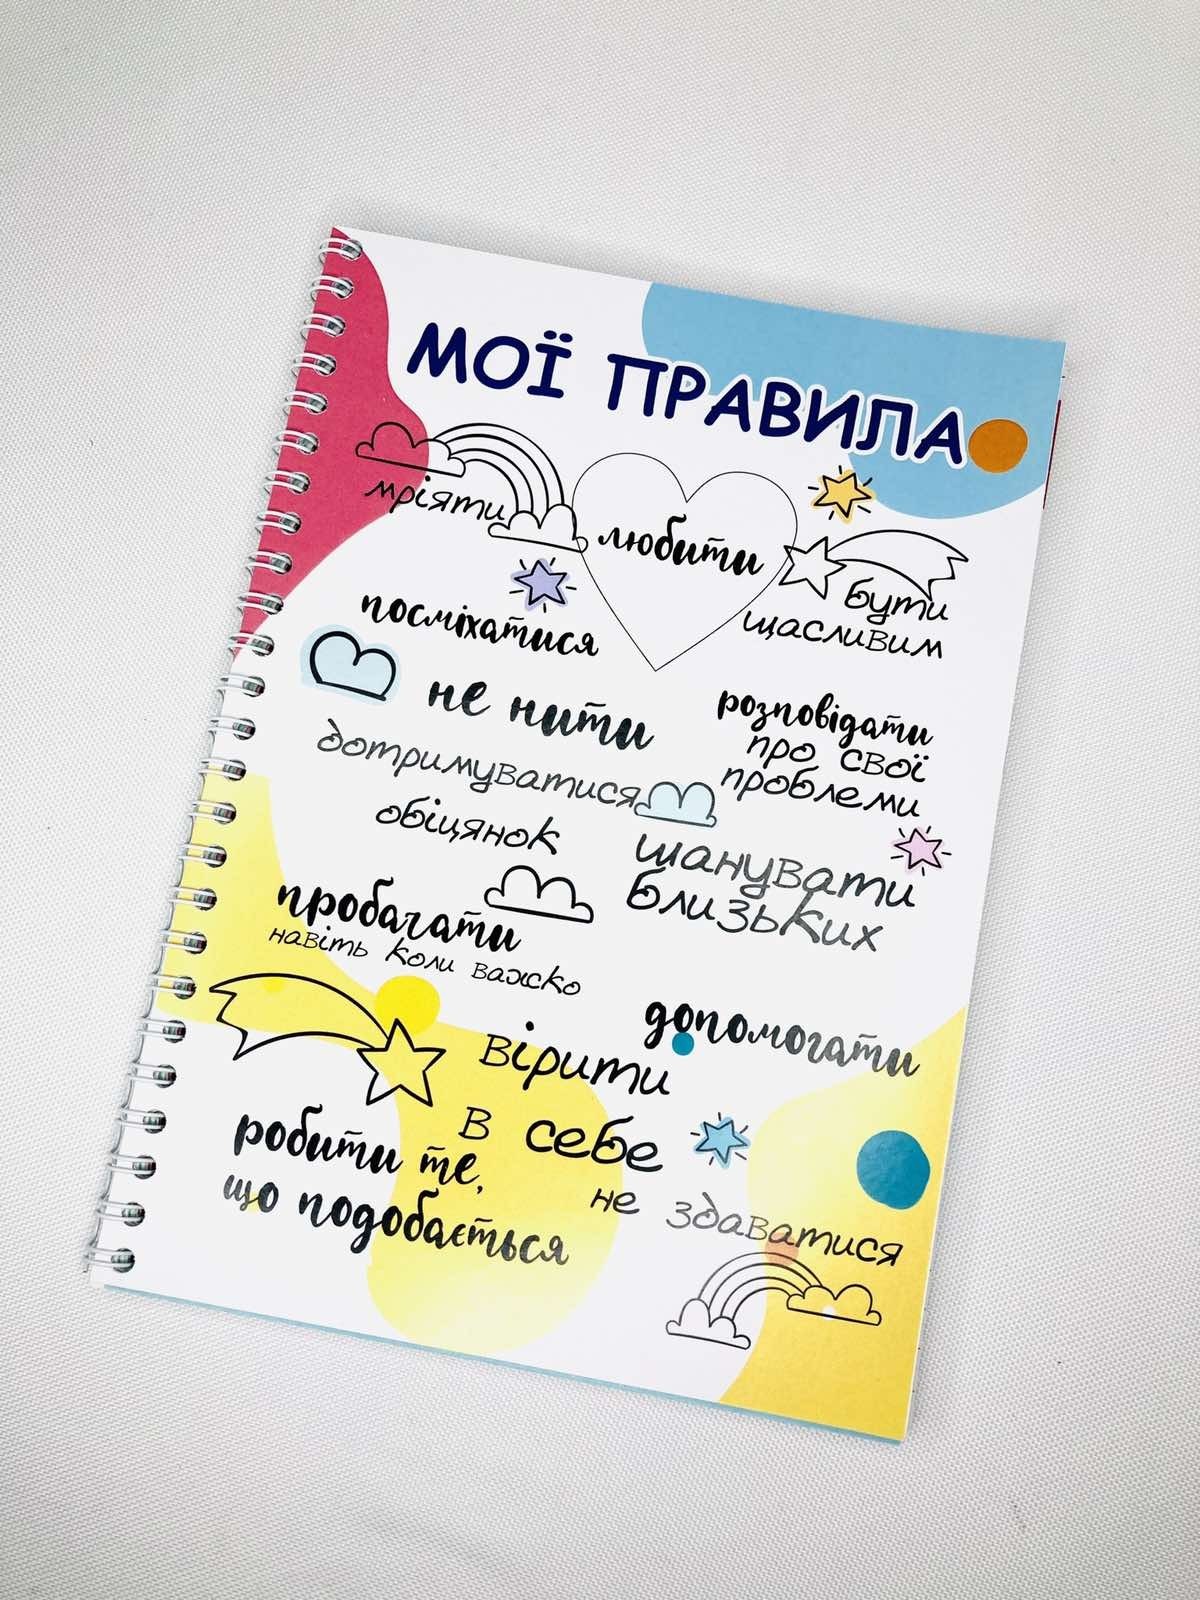 МОЇ ПРАВИЛА
мріяти
любити
бути
щасливим
посміхатися
не нити
розповідати
про свої
проблеми
дотримуватися
обіцянок
шанувати
близьких
пробачати
навіть коли важко
допомогати
вірити
в себе
робити те,
що подобається
не здаватися